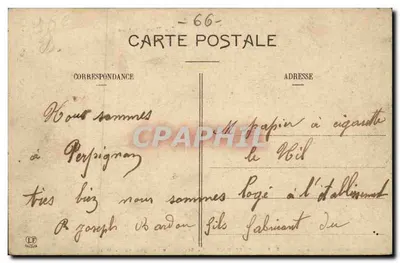 -66-
CARTE POSTALE
CORRESPONDANCE
ADRESSE
Nous sommes
à Perpignan
très biez nous sommes logé à l'établissement
R joseph Bardou fils fabricant du
papier à cigarette
le Nil
CPARAMA